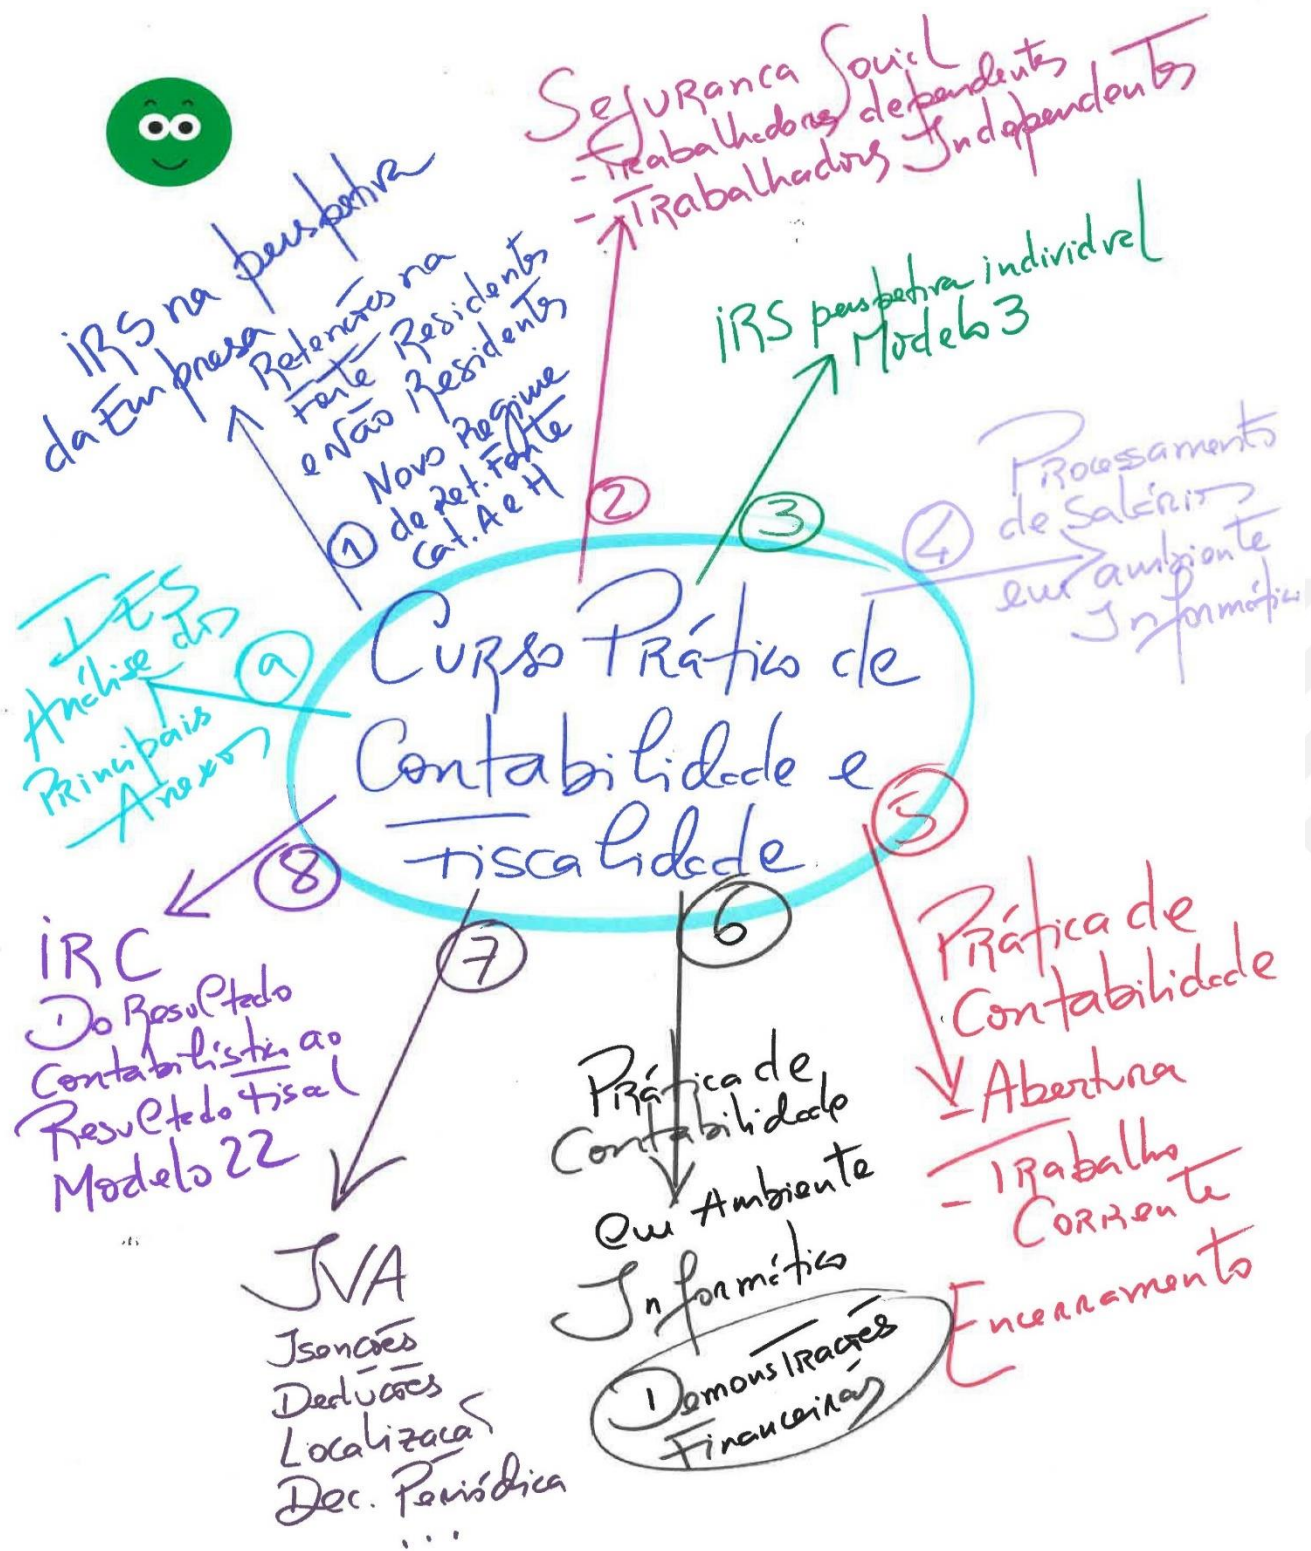 Curso Prático de
Contabilidade e
Fiscalidade
1
IRS na perspetiva
da Empresa
Retenções na
Fonte Residentes
e Não Residentes
Novo Regime
de Ret. Fonte
Cat. A e H
2
Segurança Social
- Trabalhadores dependentes
- Trabalhadores Independentes
3
IRS perspetiva individual
Modelo 3
4
Processamento
de Salários
em ambiente
Informático
5
Prática de
Contabilidade
- Abertura
- Trabalho
Corrente
Encerramento
6
Prática de
Contabilidade
em Ambiente
Informático
Demonstrações
Financeiras
7
IVA
Isenções
Deduções
Localização
Dec. Periódica
...
8
IRC
Do Resultado
Contabilístico ao
Resultado Fiscal
Modelo 22
9
IES
Análise dos
Principais
Anexos